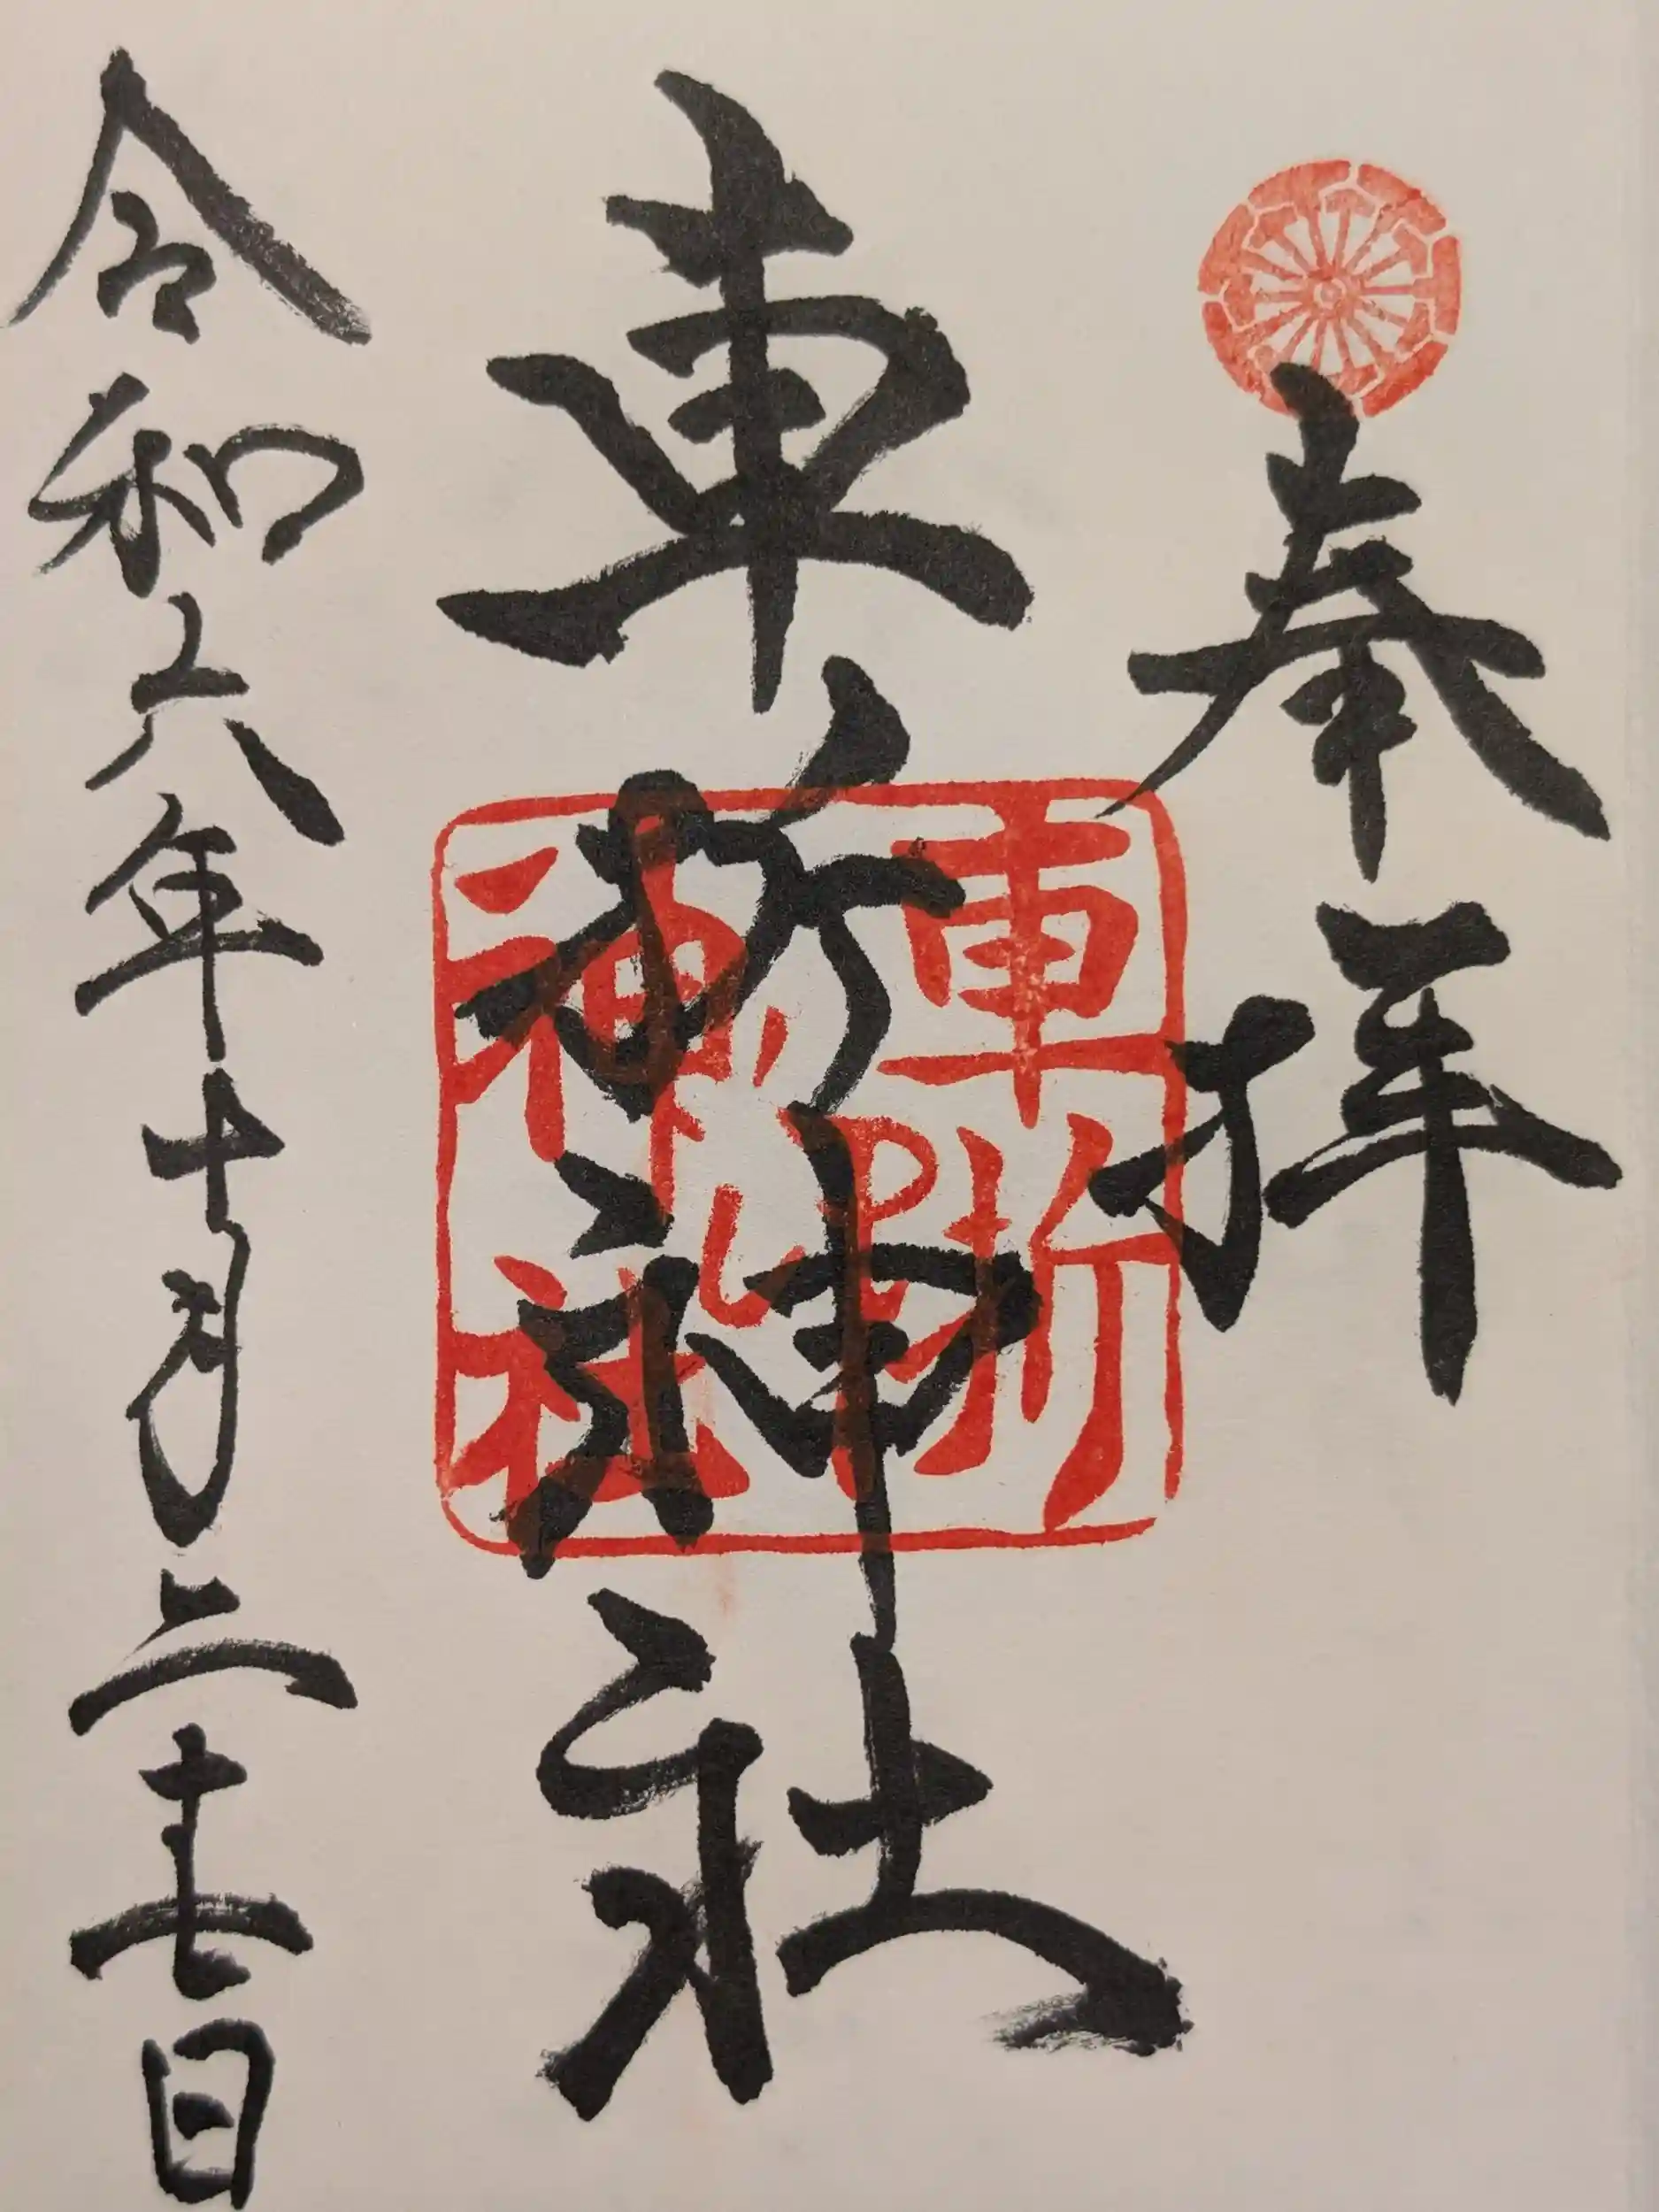 奉拝
車折神社
令和六年十月二十七日
車折
神社